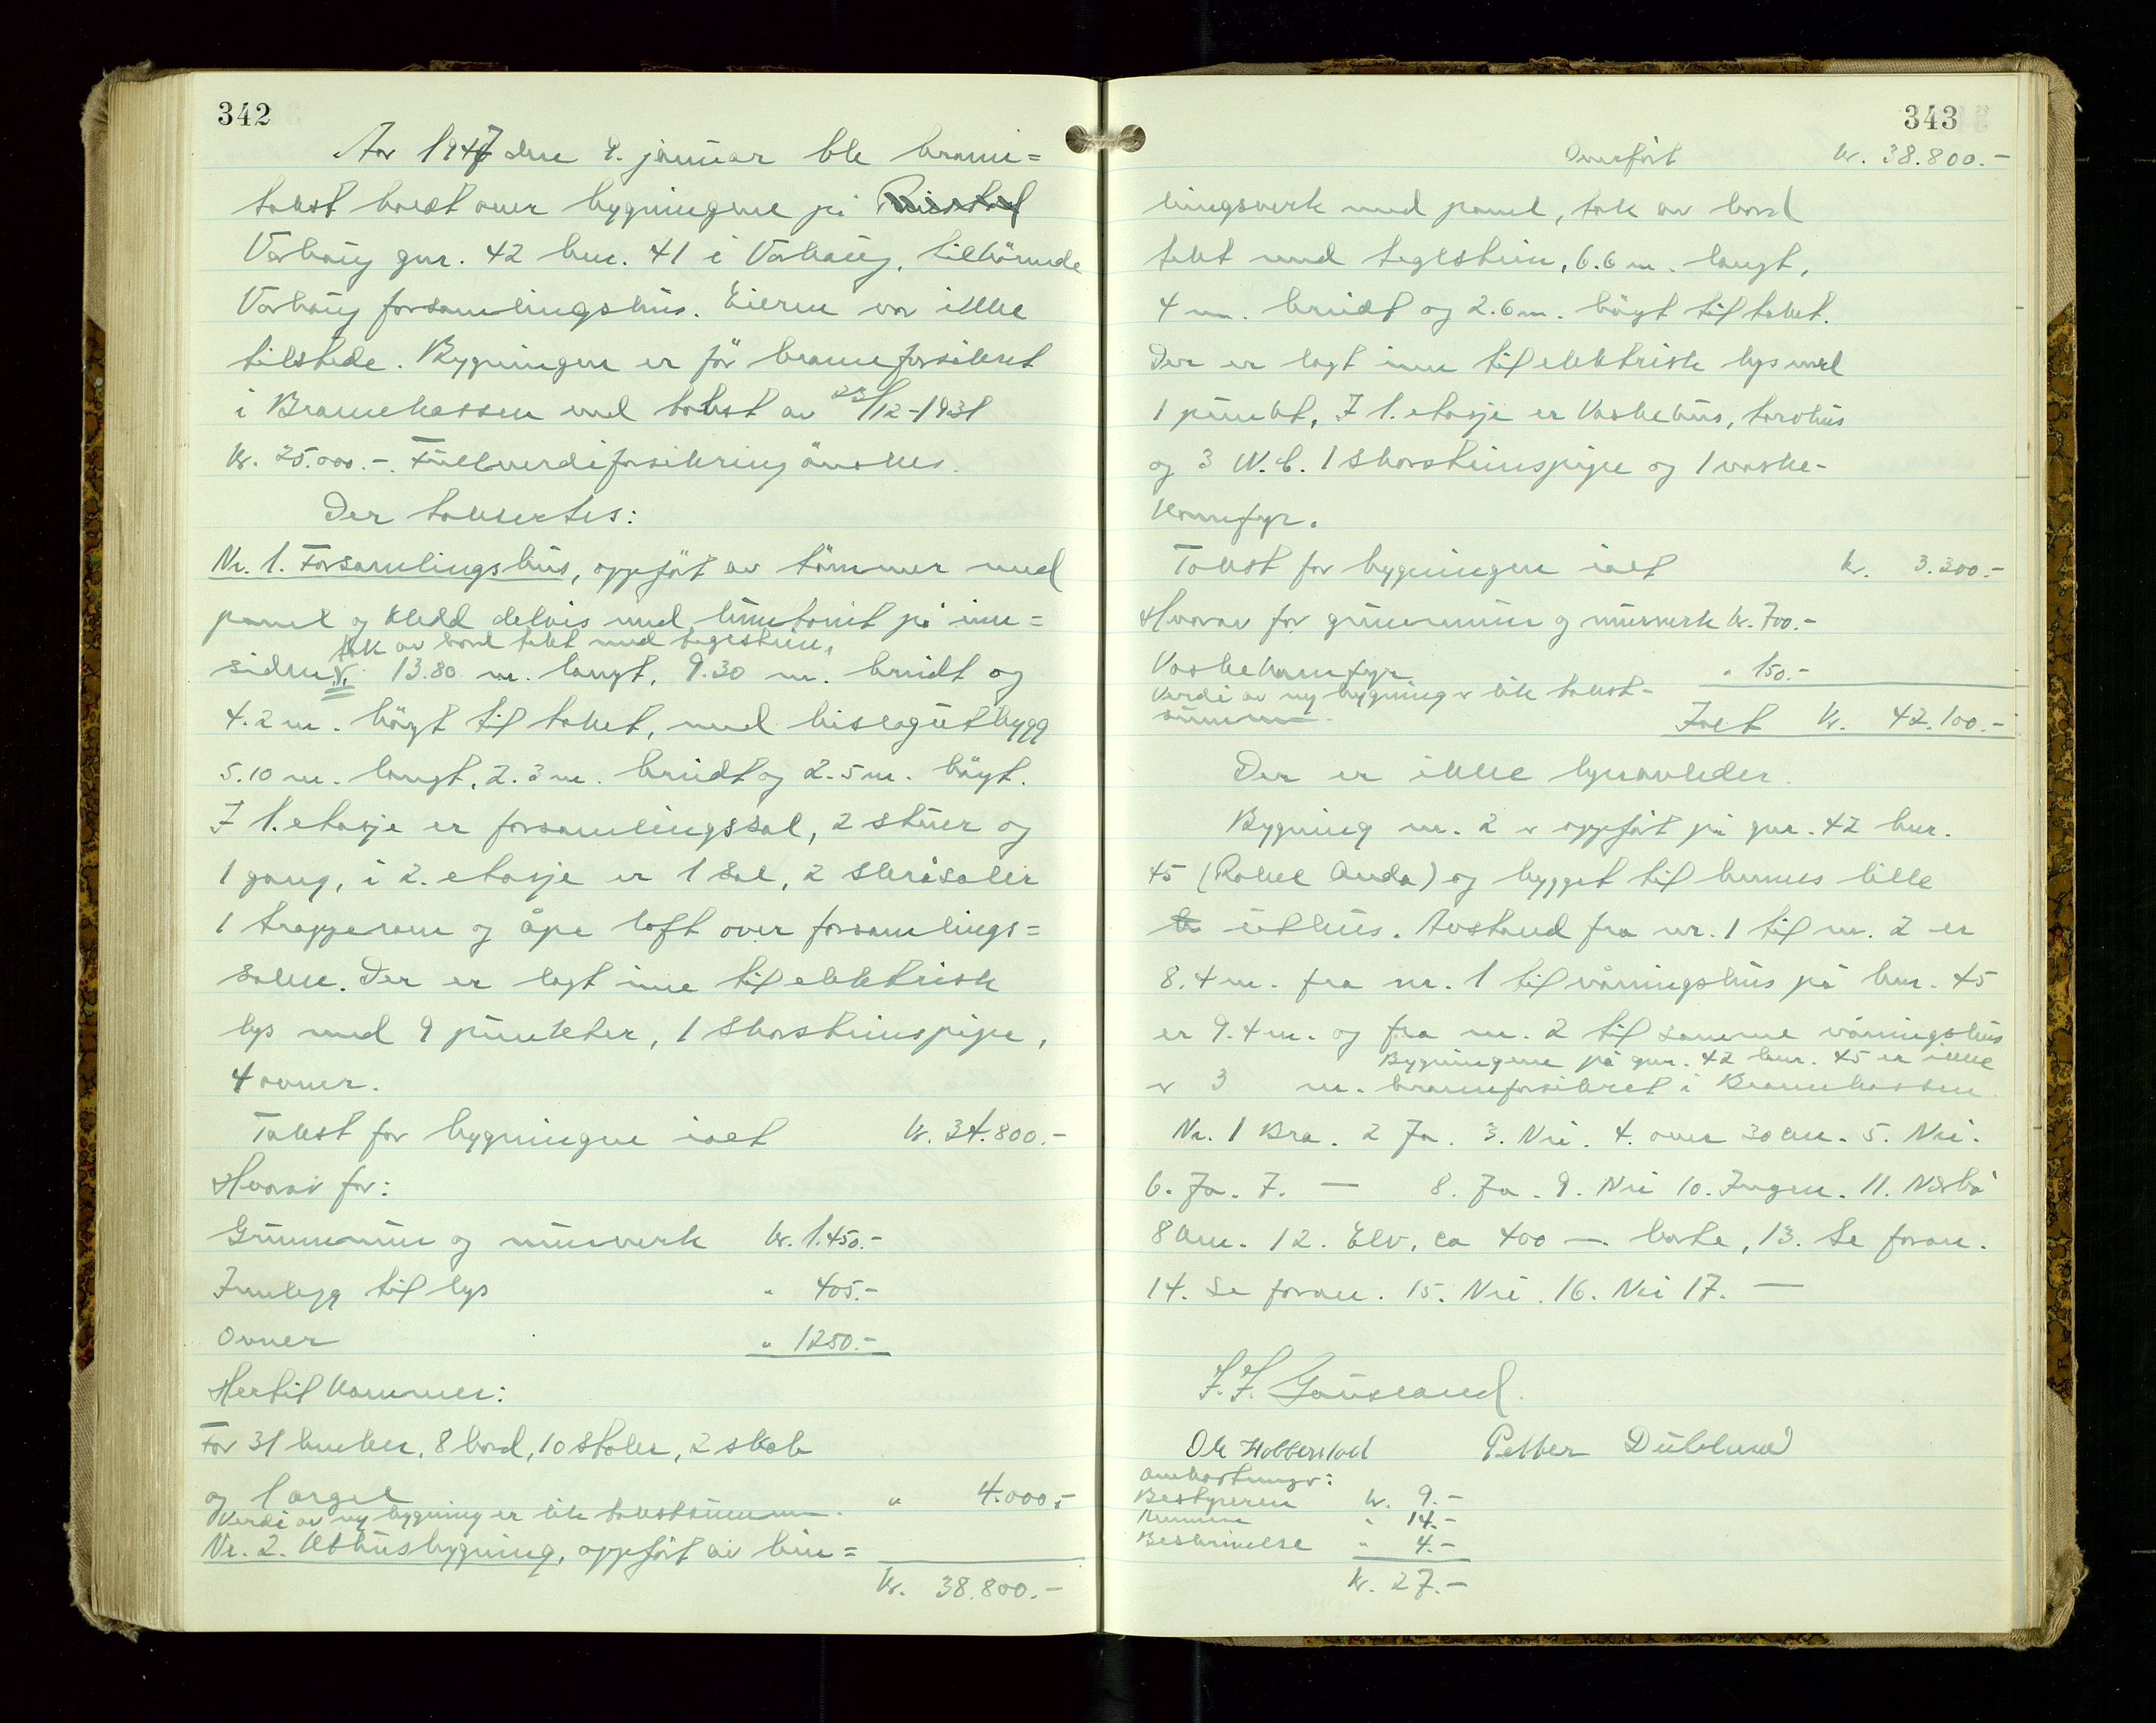 342
Aar 1947 den 9. januar ble brann=
takst holdt over bygningene på
Varhaug gnr. 42 bnr. 41 i Varhaug, tilhörende
Varhaug forsamlingshus. Eieren var ikke
tilstede. Bygningen er för brannforsikret
i Brannkassen med takst av 23/12-1931
kr. 25.000.- Fullverdiforsikring önskes.
Der takseres:
Nr. 1. Forsamlingshus, oppfört av tömmer med
panel og kledd delvis med huntonit på inn=
tak av bord tekt med teglstein,
siden V. 13.80 m. langt, 9.30 m. bredt og
4.2 m. högt til taket, med bislagutbygg
5.10 m. langt, 2.3 m. bredt og 2.5 m. högt.
I 1. etasje er forsamlingssal, 2 stuer og
1 gang, i 2. etasje er 1 sal, 2 skråsaler
1 trapperom og åpe loft over forsamlings=
salen. Der er lagt inne til elektrisk
lys med 9 punkter, 1 skorsteinspipe,
4 ovner.
Takst for bygningen ialt kr. 34.800.-
Hvorav for:
Grunnmur og murverk kr. 1.450.-
Innlegg til lys " 405.-
Ovner " 1250.-
Hertil kommer:
For 31 benker, 8 bord, 10 stoler, 2 skab
og 1 orgel " 4.000.-
Verdi av ny bygning er lik takstsummen.
Nr. 2. Uthusbygning, oppfört av bin=
kr. 38.800.-
343
Overfört kr. 38.800.-
dingsverk med panel, tak av bord
tekt med teglstein, 6.6 m. langt,
4 m. bredt og 2.6 m. högt til taket.
Der er lagt inn til elektrisk lys med
1 punkt, I 1. etasje er vaskehus, torvhus
og 3 W.C. 1 skorsteinspipe og 1 vaske-
komfyr.
Takst for bygningen ialt kr. 3.300.-
Hvorav for grunnmur og murverk kr. 700.-
Vaskekomfyr " 150.-
Verdi av ny bygning er lik takst-
summen. Ialt kr. 42.100.-
Der er ikke lynavleder.
Bygning nr. 2 er oppfört på gnr. 42 bnr.
45 (Rakel Anda) og bygget til hennes lille
uthus. Avstand fra nr. 1 til nr. 2 er
8.4 m. fra nr. 1 til våningshus på bnr. 45
er 9.4 m. og fra nr. 2 til samme våningshus
Bygningene på gnr. 42 bnr. 45 er ikke
er 3 m. brannforsikret i Brannkassen.
Nr. 1 Bra. 2 Ja. 3. Nei. 4. over 30 cm. 5. Nei.
6. Ja. 7. — 8. Ja. 9. Nei 10. Ingen. 11. Nærbö
8 km. 12. Elv. ca 400 —. borte, 13. Se foran.
14. Se foran. 15. Nei. 16. Nei 17. —
J. J. Gausland.
Ole Hobberstad Petter Dubland
Omkostninger:
Bestyreren kr. 9.-
Mennene " 14.-
Beskrivelse " 4.-
kr. 27.-